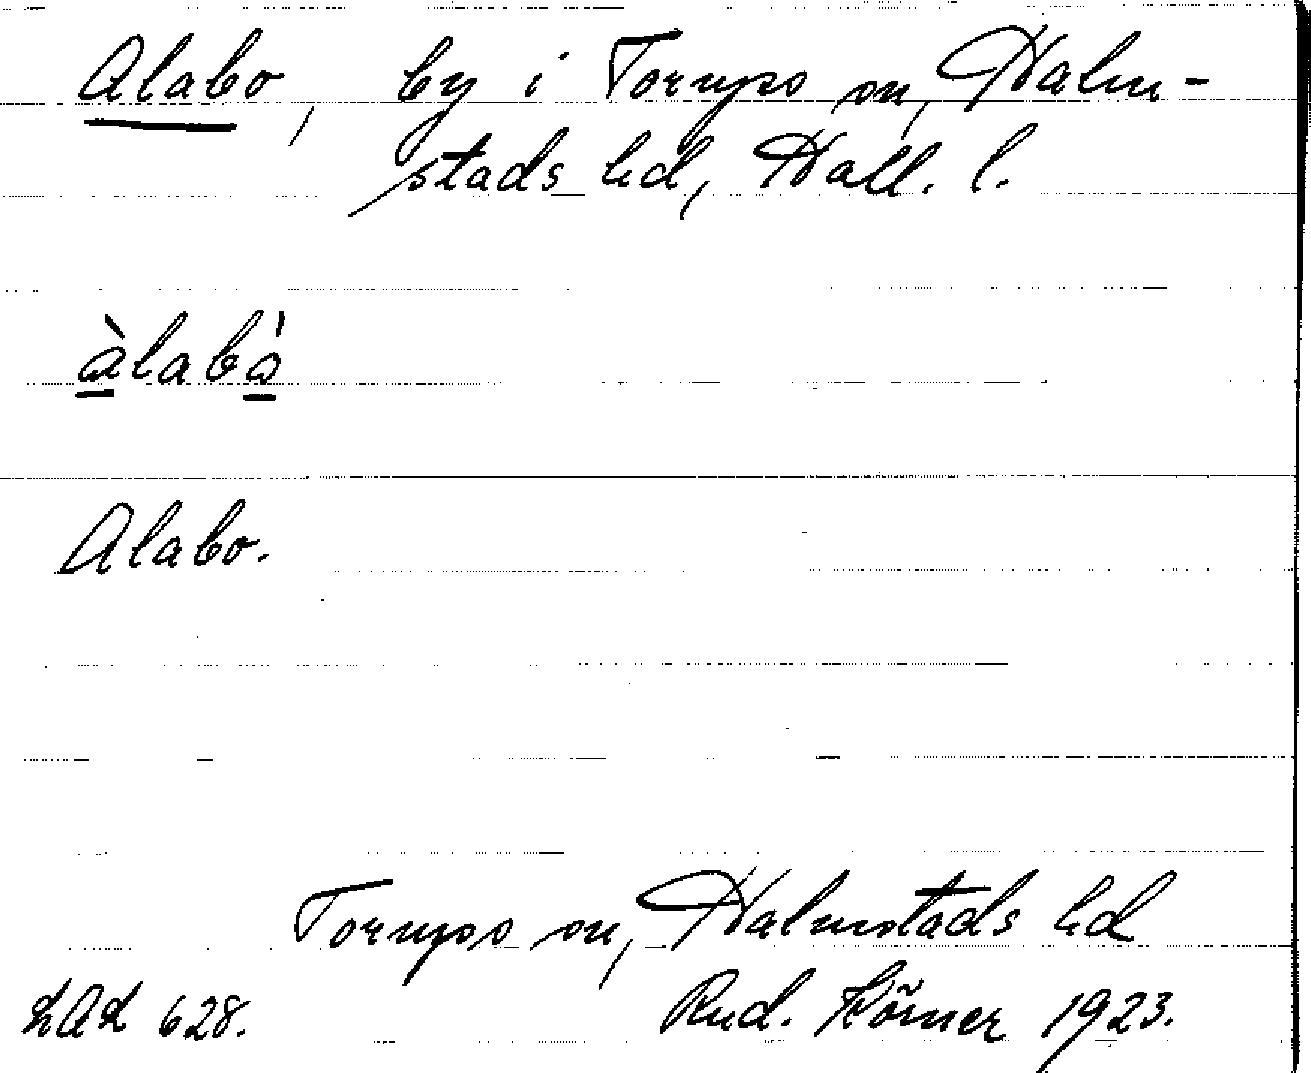 Alabo, by i Torups sn, Halm-
stads hd, Hall. l.
àlabò
Alabo.
Torups sn, Halmstads hd
LAL 628.
Rud. Körner 1923.